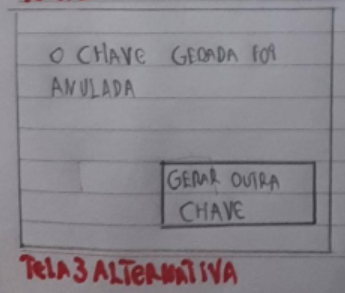 O CHAVE GERADA FOI
ANULADA
GERAR OUTRA
CHAVE
TELA 3 ALTERNATIVA